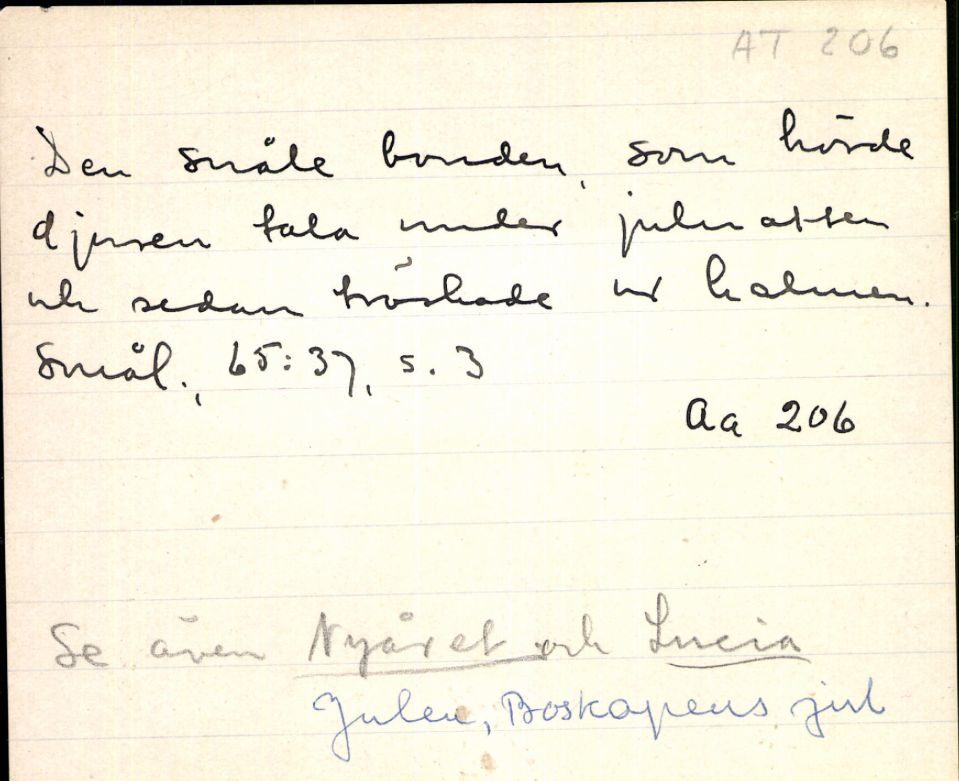 AT 206
Den snåle bonden, som hörde
djuren tala under julnatten
och sedan tröskade ur halmen.
Smål., 65:37, s. 3
Aa 206
Se även Nyåret och Lucia
Julen, Boskapens jul